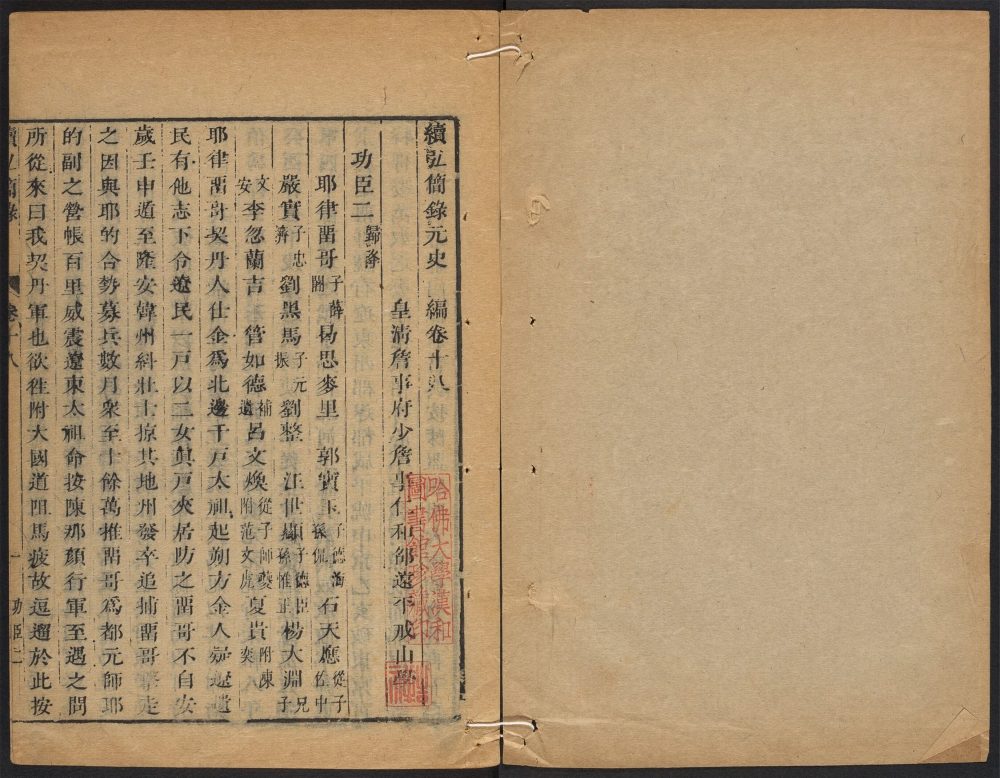 續弘簡錄元史 編卷十八
皇清詹事府少詹事仁和邵遠平戒山學
功臣二 歸降
耶律畱哥 子薛闍 曷思麥里 郭寶玉 子德海 孫侃 石天應 從子 佐中
嚴實 子忠濟 劉黑馬 子元振 劉整 汪世顯 子德臣 孫惟正 楊大淵 兄子
文安 李忽蘭吉 管如德 補遺 呂文煥 從子師夔 附范文虎 夏貴 附陳奕
耶律畱哥契丹人仕金為北邊千戸太祖起朔方金人疑遼遺
民有他志下令遼民一戸以二女真戸夾居防之畱哥不自安
歲壬申遁至隆安韓州糾壯士掠其地州發卒追捕畱哥擊走
之因與耶的合勢募兵數月衆至十餘萬推畱哥為都元帥耶
的副之營帳百里威震遼東太祖命按陳那顏行軍至遇之問
所從來曰我契丹軍也欲往附大國道阻馬疲故逗遛於此按
續弘簡錄 卷十八 一 功臣二
哈佛大學漢和
圖書館珍藏印